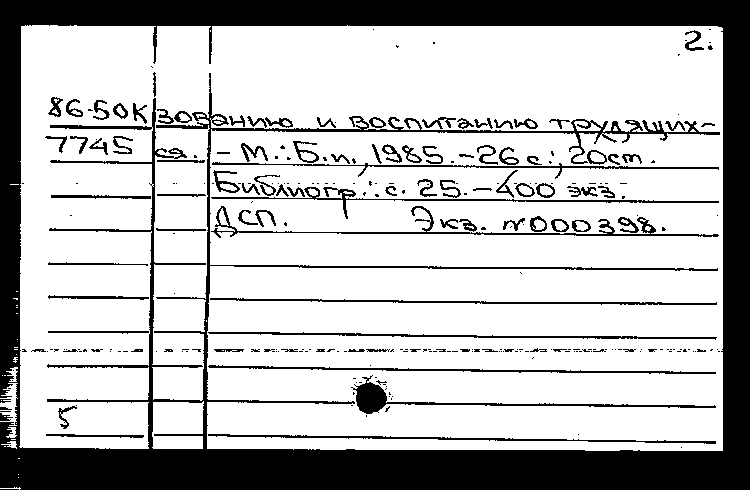 2.
86-50К зованию и воспитанию трудящих-
7745 ся. - М.: Б.и., 1985. - 26 с.; 20 ст.
Библиогр.: с. 25. - 400 экз.
ДСП. Экз. №000398.
5